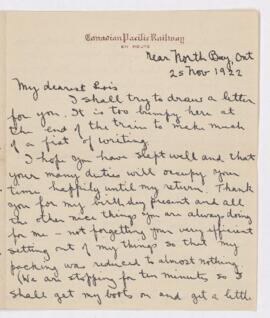 Canadian Pacific Railway
EN ROUTE
near North Bay, Ont
25 Nov 1922
My dearest Lois
I shall try to draw a letter
for you. It is too bumpy here at
the end of the train to make much
of a fist of writing.
I hope you have slept well and that
your many duties will occupy your
time happily until my return. Thank
you for my birthday present and all
the other nice things you are always doing
for me - not forgetting your very efficient
setting out of my things so that my
packing was reduced to almost nothing.
(We are stopping for ten minutes so I
shall get my boots on and get a little